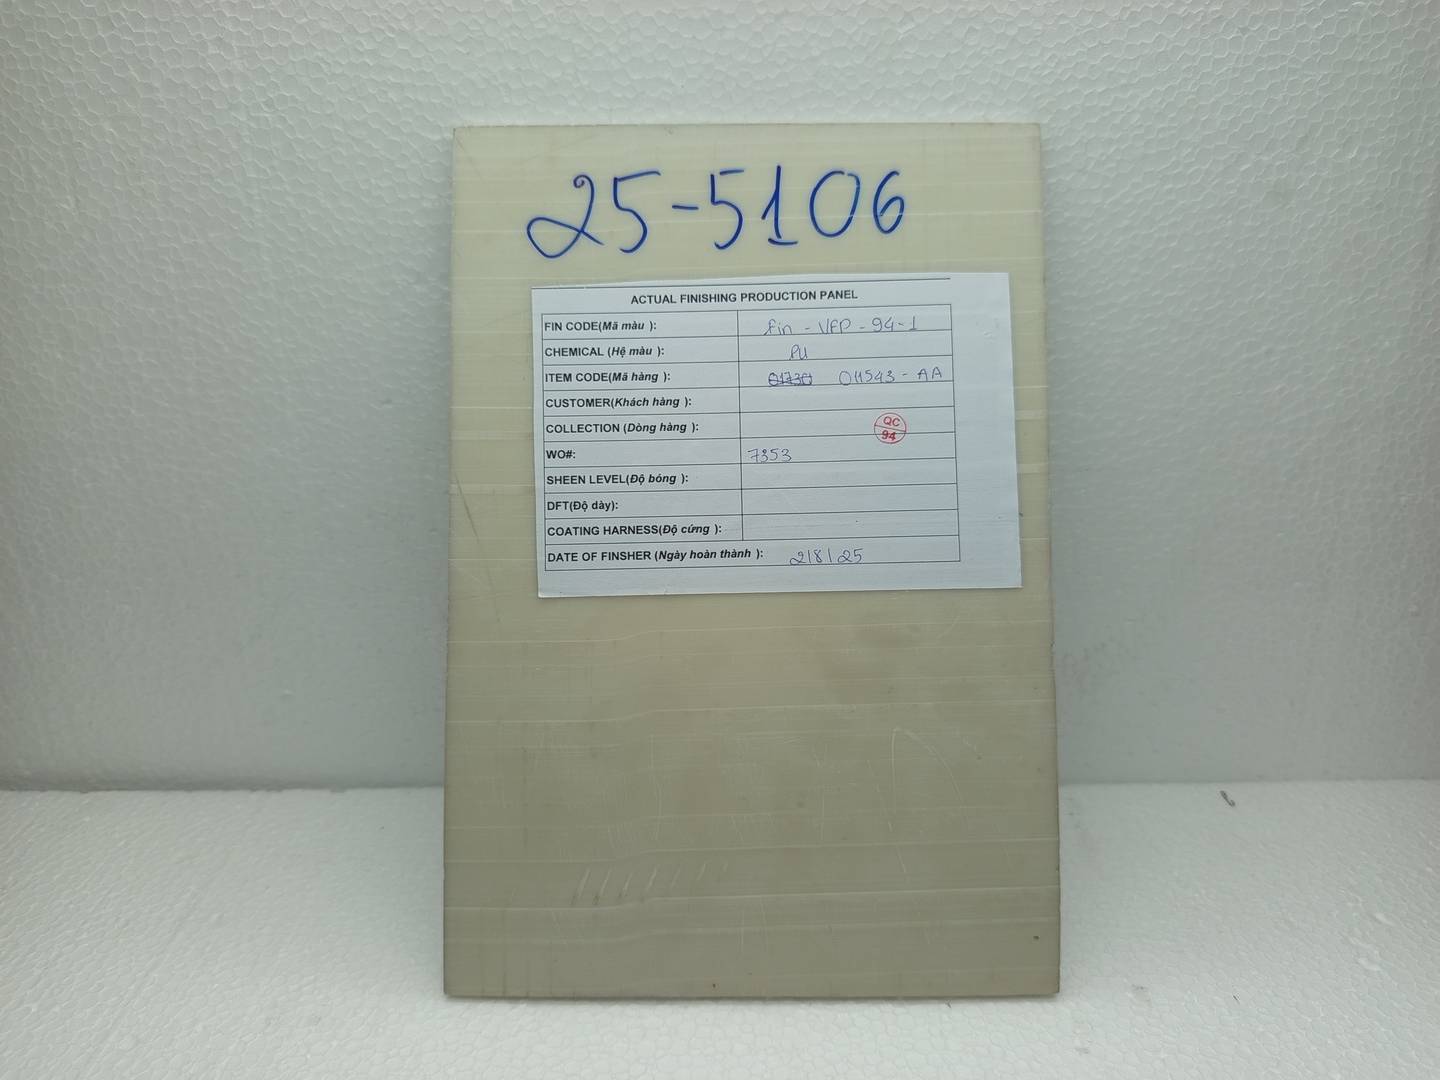 25-5106
ACTUAL FINISHING PRODUCTION PANEL
FIN CODE(Mã màu ): Fin - VFP - 94-1
CHEMICAL (Hệ màu ): PU
ITEM CODE(Mã hàng ): 01730 011543 - AA
CUSTOMER(Khách hàng ):
COLLECTION (Dòng hàng ):
QC
94
WO#: 7353
SHEEN LEVEL(Độ bóng ):
DFT(Độ dày):
COATING HARNESS(Độ cứng ):
DATE OF FINSHER (Ngày hoàn thành ): 2/8/25